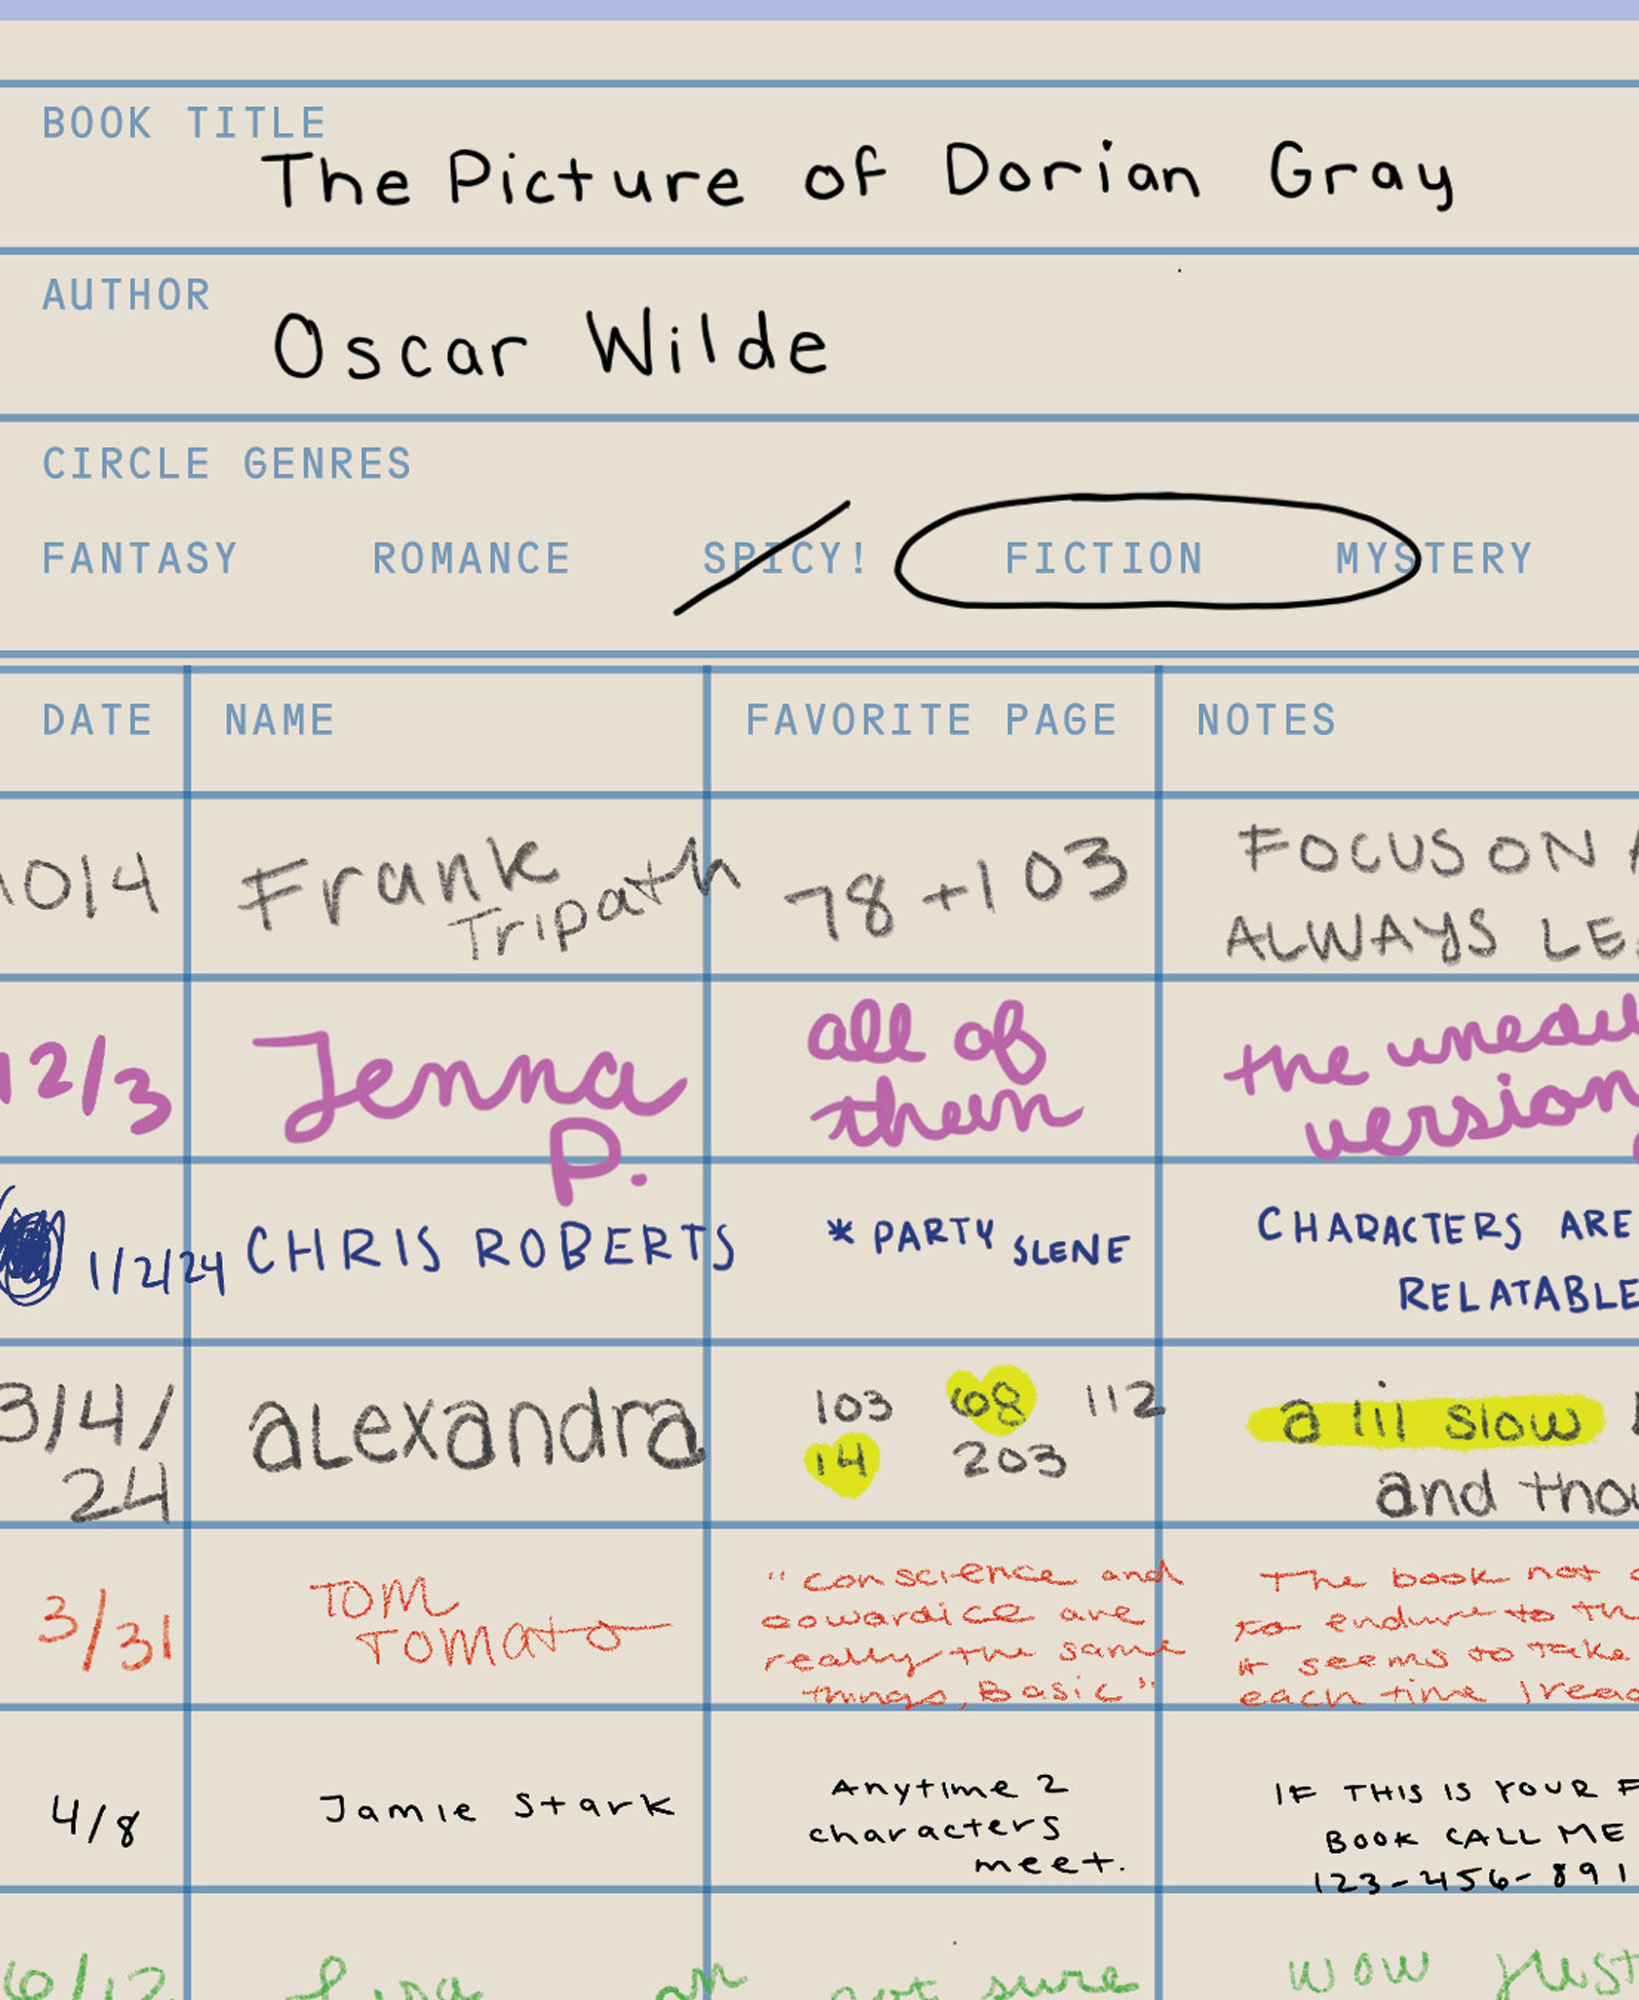 BOOK TITLE
The Picture of Dorian Gray
AUTHOR
Oscar Wilde
CIRCLE GENRES
FANTASY ROMANCE SPICY! FICTION MYSTERY
DATE NAME FAVORITE PAGE NOTES
10/4 Frank Tripath 78 + 103 FOCUS ON
ALWAYS
12/3 Jenna P. all of the
them version
1/2/24 CHRIS ROBERTS * PARTY SLENE CHARACTERS ARE
RELATABLE
3/4/ alexandra 103 68 112 a lil slow
24 14 203 and
3/31 TOM "conscience and The book not
TOMATO cowardice are to endure to
really the same it seems to take
things, Basic" each time I read
4/8 Jamie Stark Anytime 2 IF THIS IS YOUR F
characters BOOK CALL ME
meet. 123-456-891
6/12 Lisa not sure wow just